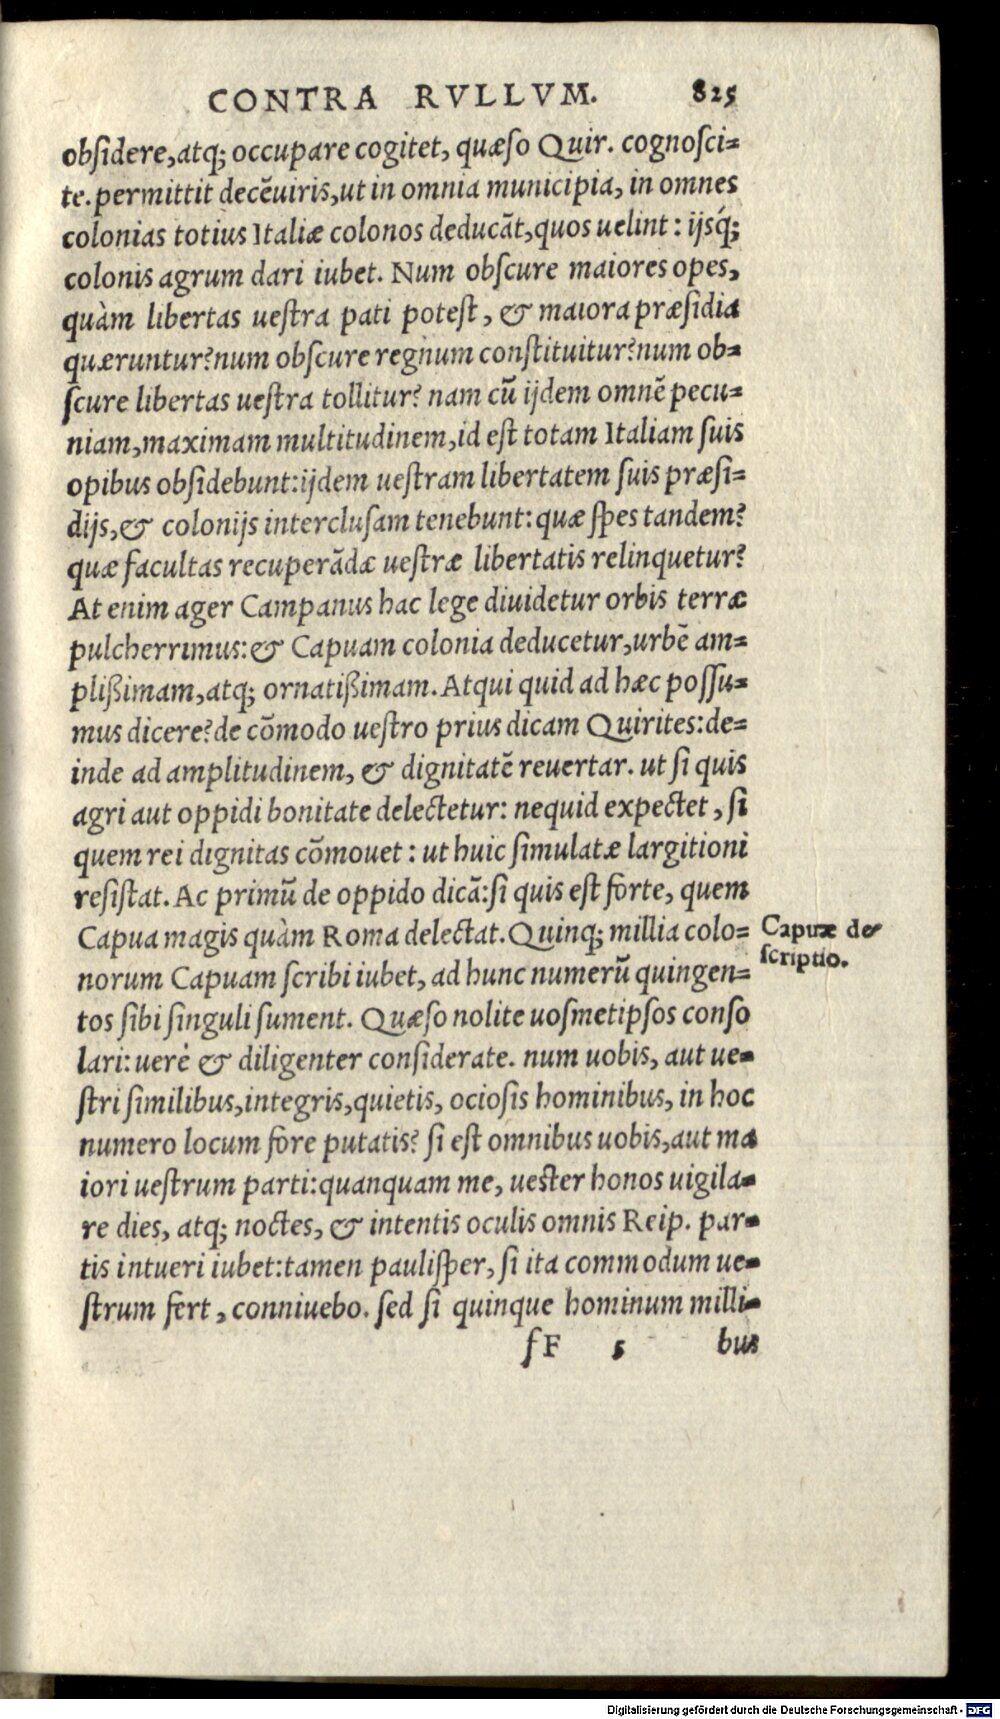 CONTRA RVLLVM. 825
obſidere,atq; occupare cogitet, quæſo Quir. cognoſci=
te. permittit decẽuiris,ut in omnia municipia, in omnes
colonias totius Italiæ colonos deducãt,quos uelint: ijsq́;
colonis agrum dari iubet. Num obſcure maiores opes,
quàm libertas ueſtra pati poteſt, & maiora præſidia
quæruntur?num obſcure regnum conſtituitur?num ob=
ſcure libertas ueſtra tollitur? nam cũ ijdem omnẽ pecu=
niam,maximam multitudinem,id eſt totam Italiam ſuis
opibus obſidebunt:ijdem ueſtram libertatem ſuis præſi=
dijs,& colonijs intercluſam tenebunt: quæ ſpes tandem?
quæ facultas recuperãdæ ueſtræ libertatis relinquetur?
At enim ager Campanus hac lege diuidetur orbis terræ
pulcherrimus:& Capuam colonia deducetur,urbẽ am=
plißimam,atq; ornatißimam. Atqui quid ad hæc poſſu=
mus dicere?de cõmodo ueſtro prius dicam Quirites:de=
inde ad amplitudinem, & dignitatẽ reuertar. ut ſi quis
agri aut oppidi bonitate delectetur: nequid expectet, ſi
quem rei dignitas cõmouet: ut huic ſimulatæ largitioni
reſiſtat. Ac primũ de oppido dicã:ſi quis eſt forte, quem
Capua magis quàm Roma delectat. Quinq; millia colo=
norum Capuam ſcribi iubet, ad hunc numerũ quingen=
tos ſibi ſinguli ſument. Quæſo nolite uoſmetipſos conſo
lari: uerè & diligenter conſiderate. num uobis, aut ue=
ſtri ſimilibus,integris,quietis, ocioſis hominibus, in hoc
numero locum fore putatis? ſi eſt omnibus uobis,aut ma
iori ueſtrum parti:quanquam me, ueſter honos uigila=
re dies, atq; noctes, & intentis oculis omnis Reip. par=
tis intueri iubet:tamen pauliſper, ſi ita commodum ue=
ſtrum fert, conniuebo. ſed ſi quinque hominum milli=
fF 5 bus
Capuæ de=
ſcriptio.
Digitalisierung gefördert durch die Deutsche Forschungsgemeinschaft - DFG